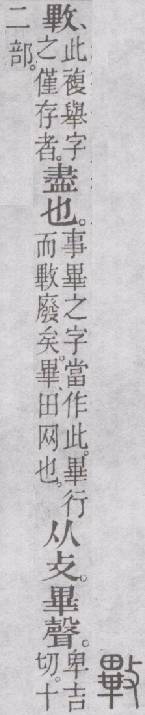 㪤、此複舉字之僅存者。盡也。事畢之字當作此。畢行而㪤廢矣。畢、田网也。从攴。畢聲。卑吉切。十
二部。